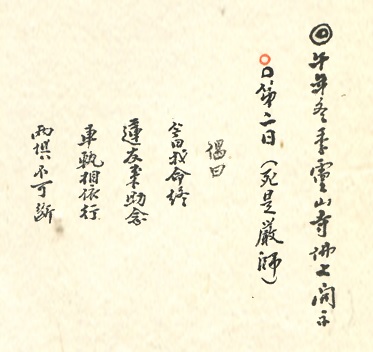 ◎午年冬季靈山寺佛七開示
○第二日(死是嚴師)
偈曰
當我命終
蓮友來助念
車軌相依行
兩俱不可斷